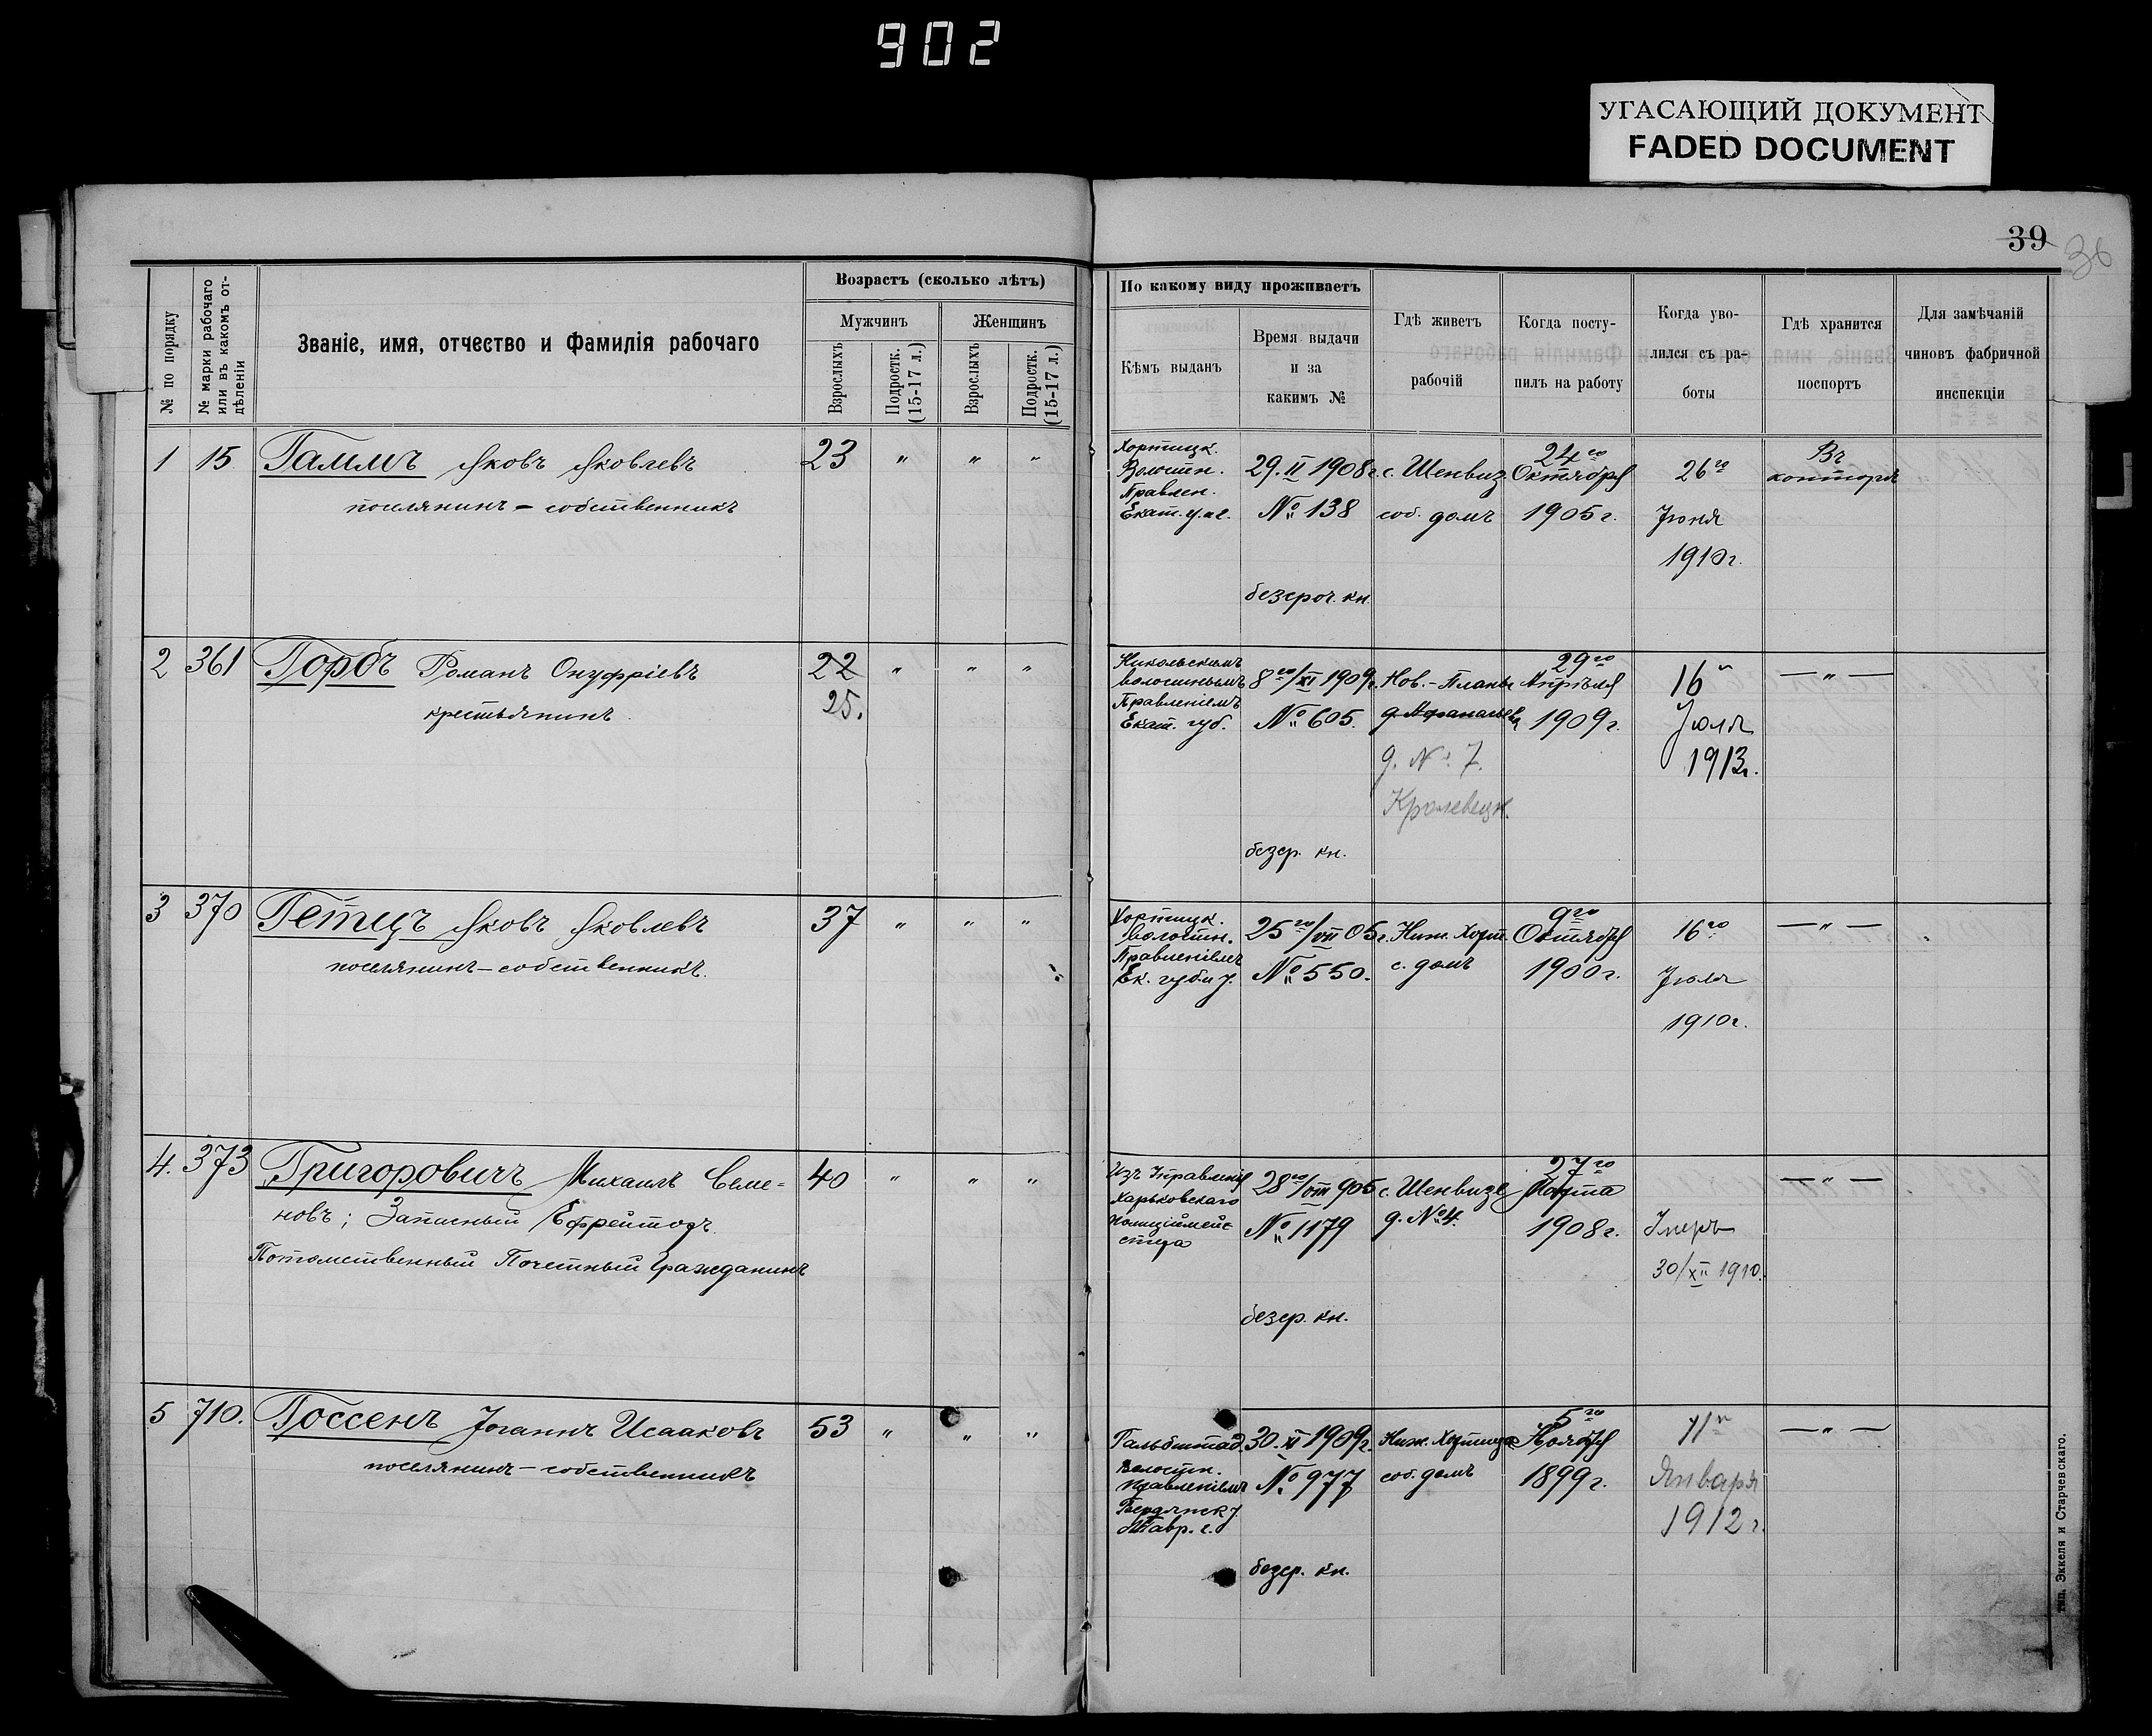 902
УГАСАЮЩИЙ ДОКУМЕНТ
FADED DOCUMENT
39
36
№ по порядку
№ марки рабочаго
или въ какомъ от-
дѣленіи
Званіе, имя, отчество и фамилія рабочаго
Возрастъ (сколько лѣтъ)
Мужчинъ
Женщинъ
Взрослыхъ
Подростк.
(15-17 л.)
Взрослыхъ
Подростк.
(15-17 л.)
По какому виду проживаетъ
Кѣмъ выданъ
Время выдачи
и за
какимъ №
Гдѣ живетъ
рабочій
Когда посту-
пилъ на работу
Когда уво-
лился съ ра-
боты
Гдѣ хранится
поспортъ
Для замѣчаній
чиновъ фабричной
инспекціи
1
15
Гаммъ Яковъ Яковлевъ
поселянинъ - собственникъ
23
" " "
Хортицк.
Волостн.
Правлен.
Екат. у. и г.
29. II 1908 г.
№ 138
безсроч. кн.
с. Шенвиз.
соб. домъ
24го
Октября
1905 г.
26го
Іюня
1910 г.
Въ
конторѣ
2
361
Горбъ Романъ Онуфріевъ
крестьянинъ.
22
25.
" " "
Никольскимъ
волостнымъ
Правленіемъ
Екат. губ.
8го/XI 1909 г.
№ 605.
безср. кн.
Нов.-Планы
д. Афанасьева
д. № 7.
Кролевецк.
29го
Апрѣля
1909 г.
16
Іюля
1913 г.
— " —
3
370
Гетцъ Яковъ Яковлевъ
поселянинъ - собственникъ.
37
" " "
Хортицк.
волостн.
Правленіемъ
Ек. губ. и у.
25го/VII 05 г.
№ 550.
Ниж. Хорт.
с. домъ
9го
Октября
1900 г.
16го
Іюля
1910 г.
— " —
4.
373
Григоровичъ Михаилъ Семе-
новъ; Запасный Ефрейторъ.
Потомственный Почетный Гражданинъ
40
" " "
Изъ Управленія
Харьковскаго
Полиціймей-
стера
28го/VIII 905
№ 1179
безср. кн.
с. Шенвизе
д. № 4.
27го
Марта
1908 г.
Умеръ
30/XII 1910.
— " —
5
710.
Госсенъ Іоганнъ Исааковъ
поселянинъ - собственникъ
53
" " "
Гальбштад.
Волостн.
Правленіемъ
Бердянск. у.
Тавр. г.
30. XI 1909 г.
№ 977
безср. кн.
Ниж. Хортица
соб. домъ
5го
Ноября
1899 г.
Января
1912 г.
— " —
тип. Эккеля и Старчевскаго.